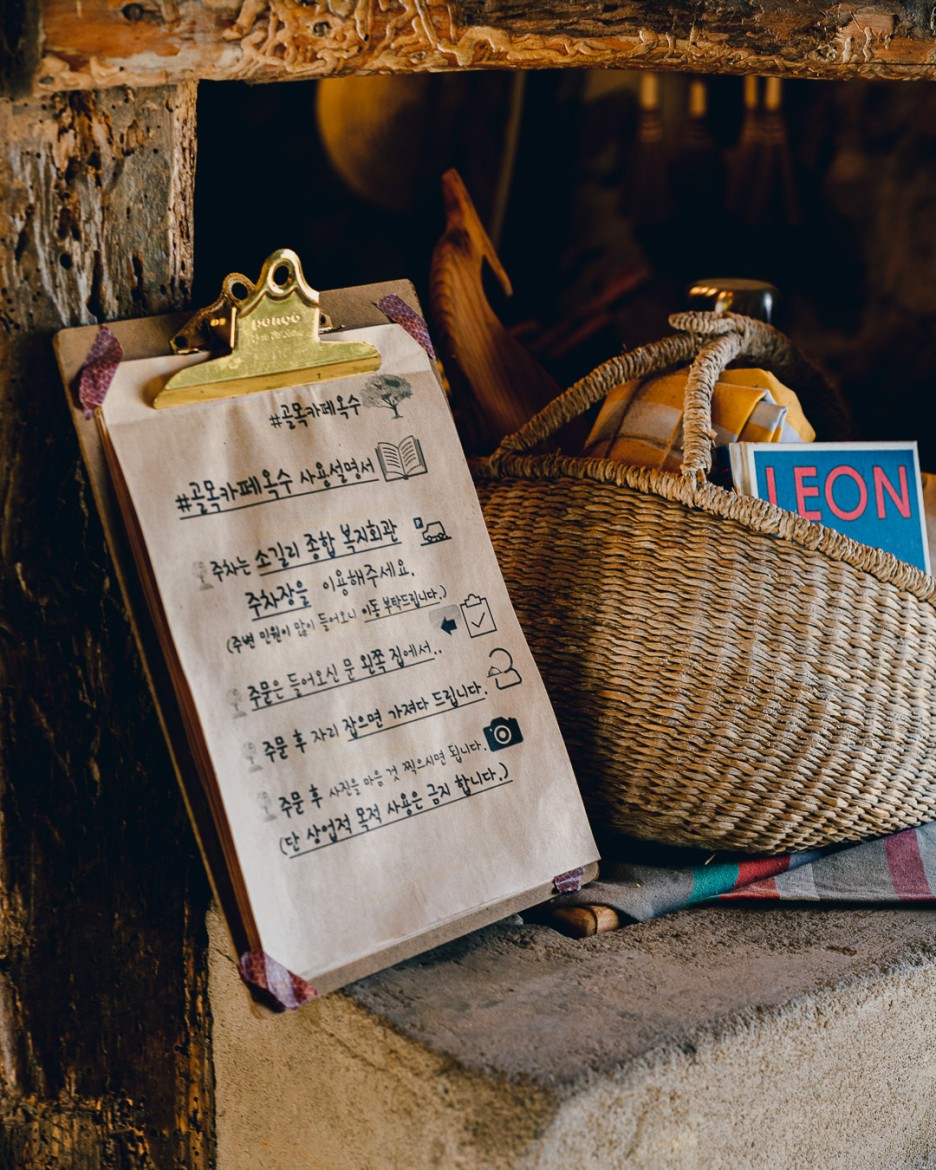 penco
#골목카페옥수
#골목카페옥수 사용설명서
주차는 소길리 종합 복지회관
주차장을 이용해주세요.
(주변 민원이 많이 들어오니 이동 부탁드립니다.)
주문은 들어오신 문 왼쪽 집에서..
주문 후 자리 잡으면 가져다 드립니다.
주문 후 사진을 마음 것 찍으시면 됩니다.
(단 상업적 목적 사용은 금지 합니다.)
LEON